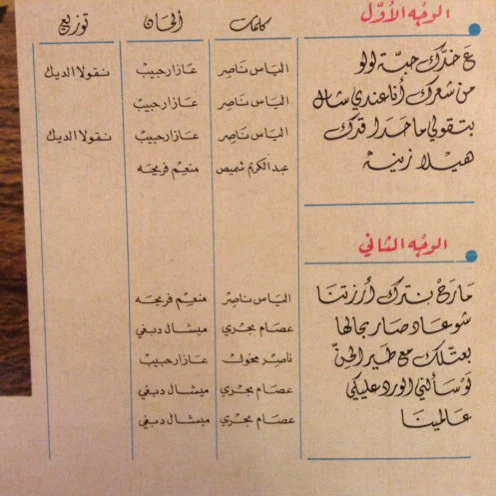 الوجه الأوّل كلمات ألحان توزيع
عَ خدّك حبّة لولو الياس ناصر عازار حبيب نقولا الديك
من شعرك أنا عندي شال الياس ناصر عازار حبيب
بتقولي ما حدا قدك الياس ناصر عازار حبيب نقولا الديك
هيلا زينة عبد الكريم شميص منعم فريحه
الوجه الثاني
مارح نترك أرزتنا الياس ناصر منعم فريحه
شو عاد صار بحالها عصام بحري ميشال دبغي
بعتلك مع طير الحنّ ناصر مخول عازار حبيب
لو سألني الورد عليكي عصام بحري ميشال دبغي
عالمينا عصام بحري ميشال دبغي